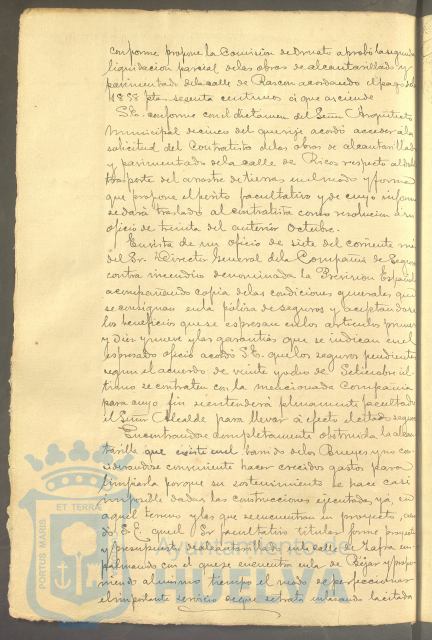 conforme propone la Comision de Ornato aprobó la segunda
liquidacion parcial de las obras de alcantarillado y
pavimentado de la calle de Rascon acordando el pago de las
4858 ptas. sesenta centimos á que asciende
S.E. conforme con el dictamen del Señor Arquitecto
Municipal de cinco del que rije acordó acceder á la
solicitud del Contratista de las obras de alcantarillado
y pavimentado de la calle de Ricos respecto al
trasporte del arrastre de tierras en el modo y forma
que propone el perito facultativo y de cuyo informe
se dará traslado al contratista como resolucion á su
oficio de treinta del anterior Octubre.
En vista de un oficio de siete del corriente mes
del Sr. Director General de la Compañia de Seguros
contra incendios denominada la Prevision Española
acompañando copia de las condiciones generales que
se consignan en la póliza de seguros y aceptandose
los beneficios que se espresan en los articulos primero
y diez y nueve y las garantias que se indican en el
espresado oficio acordó S.E. que los seguros pendientes
segun el acuerdo de veinte y ocho de Setiembre úl-
timo se contraten con la mencionada Compañia
para cuyo fin se entenderá plenamente facultado
el Señor Alcalde para llevar á efecto el citado seguro
Encontrandose completamente obstruida la alcan-
tarilla que existe en el barrio de los Bueyes y no con-
siderandose conveniente hacer crecidos gastos para
limpiarla porque su sostenimiento se hace casi
imposible dadas las construcciones ejecutadas ya, en
aquel terreno y las que se encuentran en proyecto, acor-
dó S.E. que el Sr. facultativo titular forme proyecto
y presupuesto de alcantarillado en la calle de Zafra em-
palmando con el que se encuentra en la de Béjar y propo-
niendo al mismo tiempo el modo de perfeccionar
el importante servicio de que se trata enlazando la citada
PORTUS MARIS
ET TERRAE
Ayuntamiento de